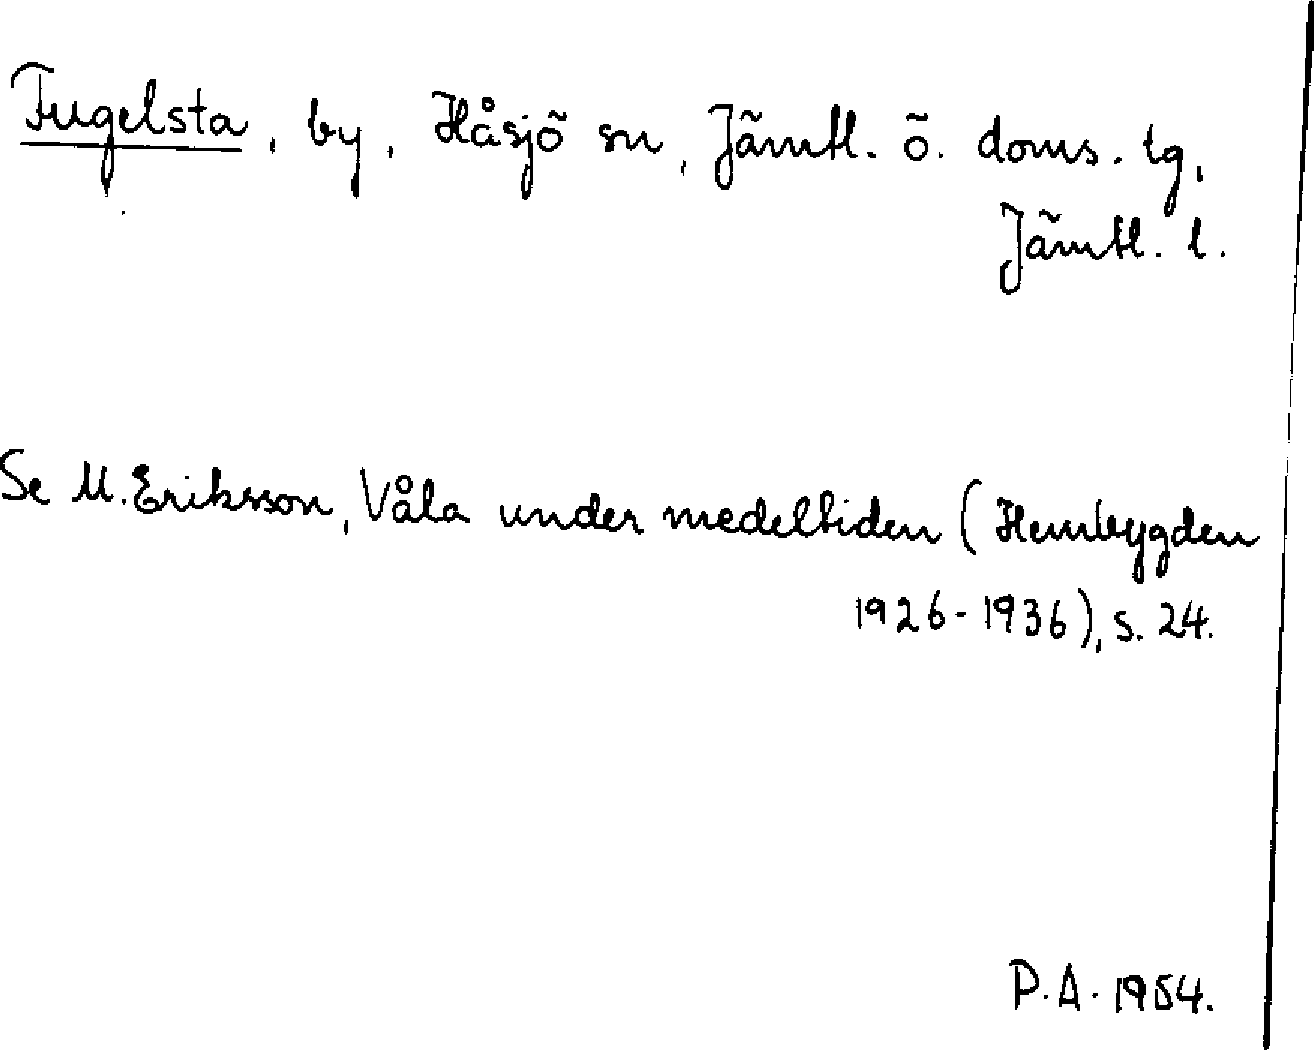 Fugelsta, by, Håsjö sn, Jämtl. ö. doms. tg,
Jämtl. l.
Se M. Eriksson, Våla under medeltiden (Hembygden
1926-1936), s. 24.
P.A. 1954.